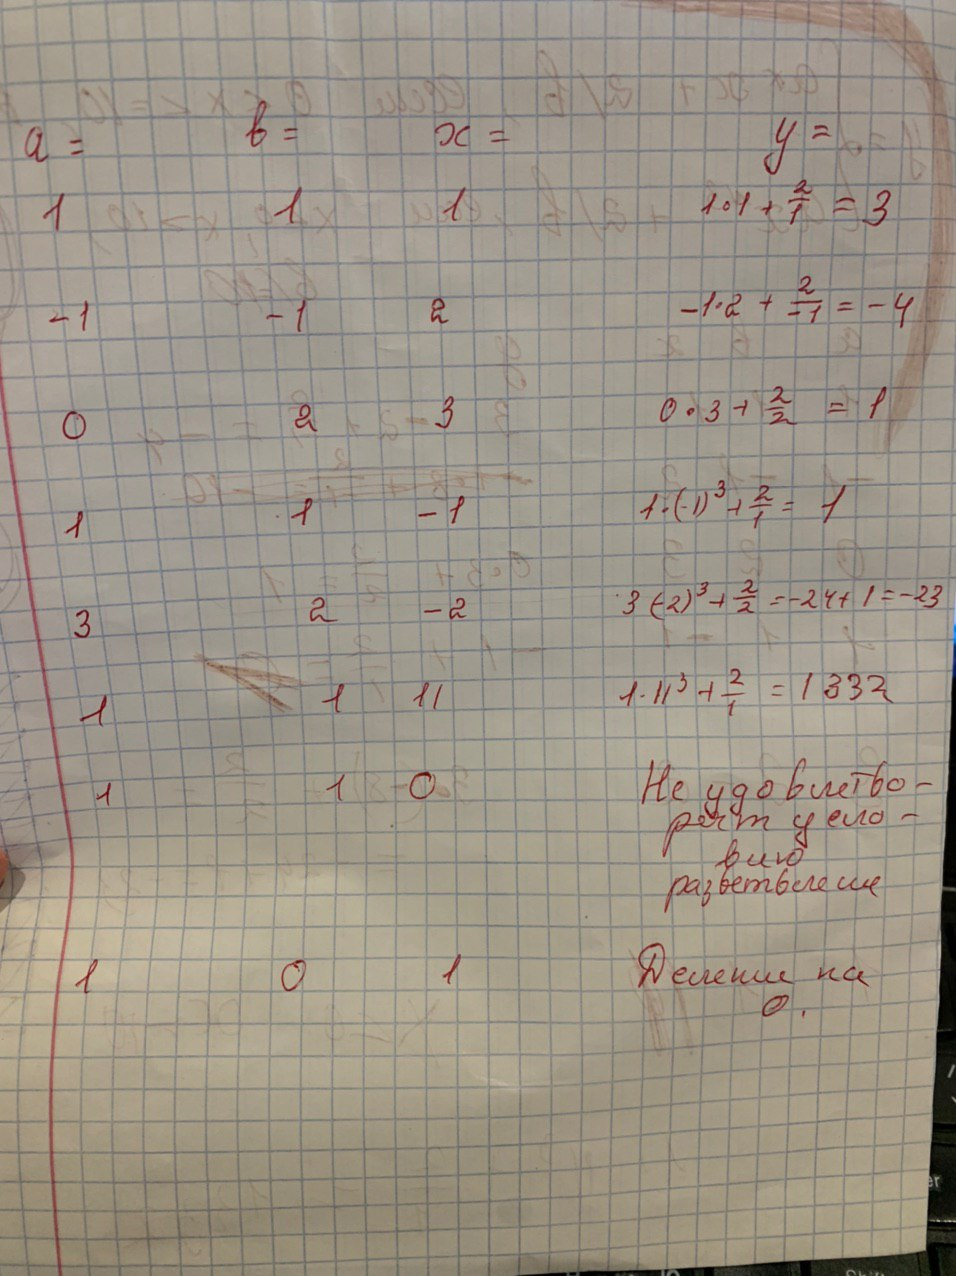 a = в = x = y =
1 1 1 1·1 + 2/1 = 3
-1 -1 2 -1·2 + 2/-1 = -4
0 2 3 0·3 + 2/2 = 1
1 1 -1 1·(-1)³ + 2/1 = 1
3 2 -2 3(-2)³ + 2/2 = -24 + 1 = -23
1 1 11 1·11³ + 2/1 = 1332
1 1 0 Не удовлетво-
рят усло-
вию
разветвление
1 0 1 Деление на
0.